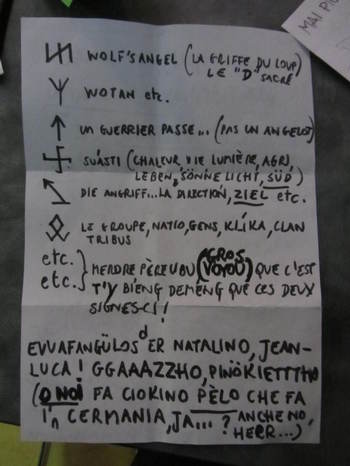 WOLF'SANGEL (LA GRIFFE DU LOUP)
LE "D" SACRÉ
WOTAN etc.
UN GUERRIER PASSE... (PAS UN ANGELOT)
SUÁSTI (CHALEUR, VIE LUMIÈRE, AGRJ,
LEBEN, SÖNNE LICHT, SÜD)
DIE ANGRIFF...LA DIRECTION, ZIEL etc.
LE GROUPE, NATIO, GENS, KLÍKA, CLAN
TRIBUS
etc.
etc.
MERDRE PÈRE UBU (GROS VOYOU) QUE C'EST
T'Y BIENG DEMÊNG QUE CES DEUX
SIGNES-CI!!
EVVAFANGÜLOS d'ER NATALINO, JEAN-
LUCA! GGAAAZZHO, PINÖKIETTTHO
(O NOI FA CIOKINO PÈLO CHE FA
in CERMANIA, JA...? ANCHE NO,
HERR...)
MAI PIÙ